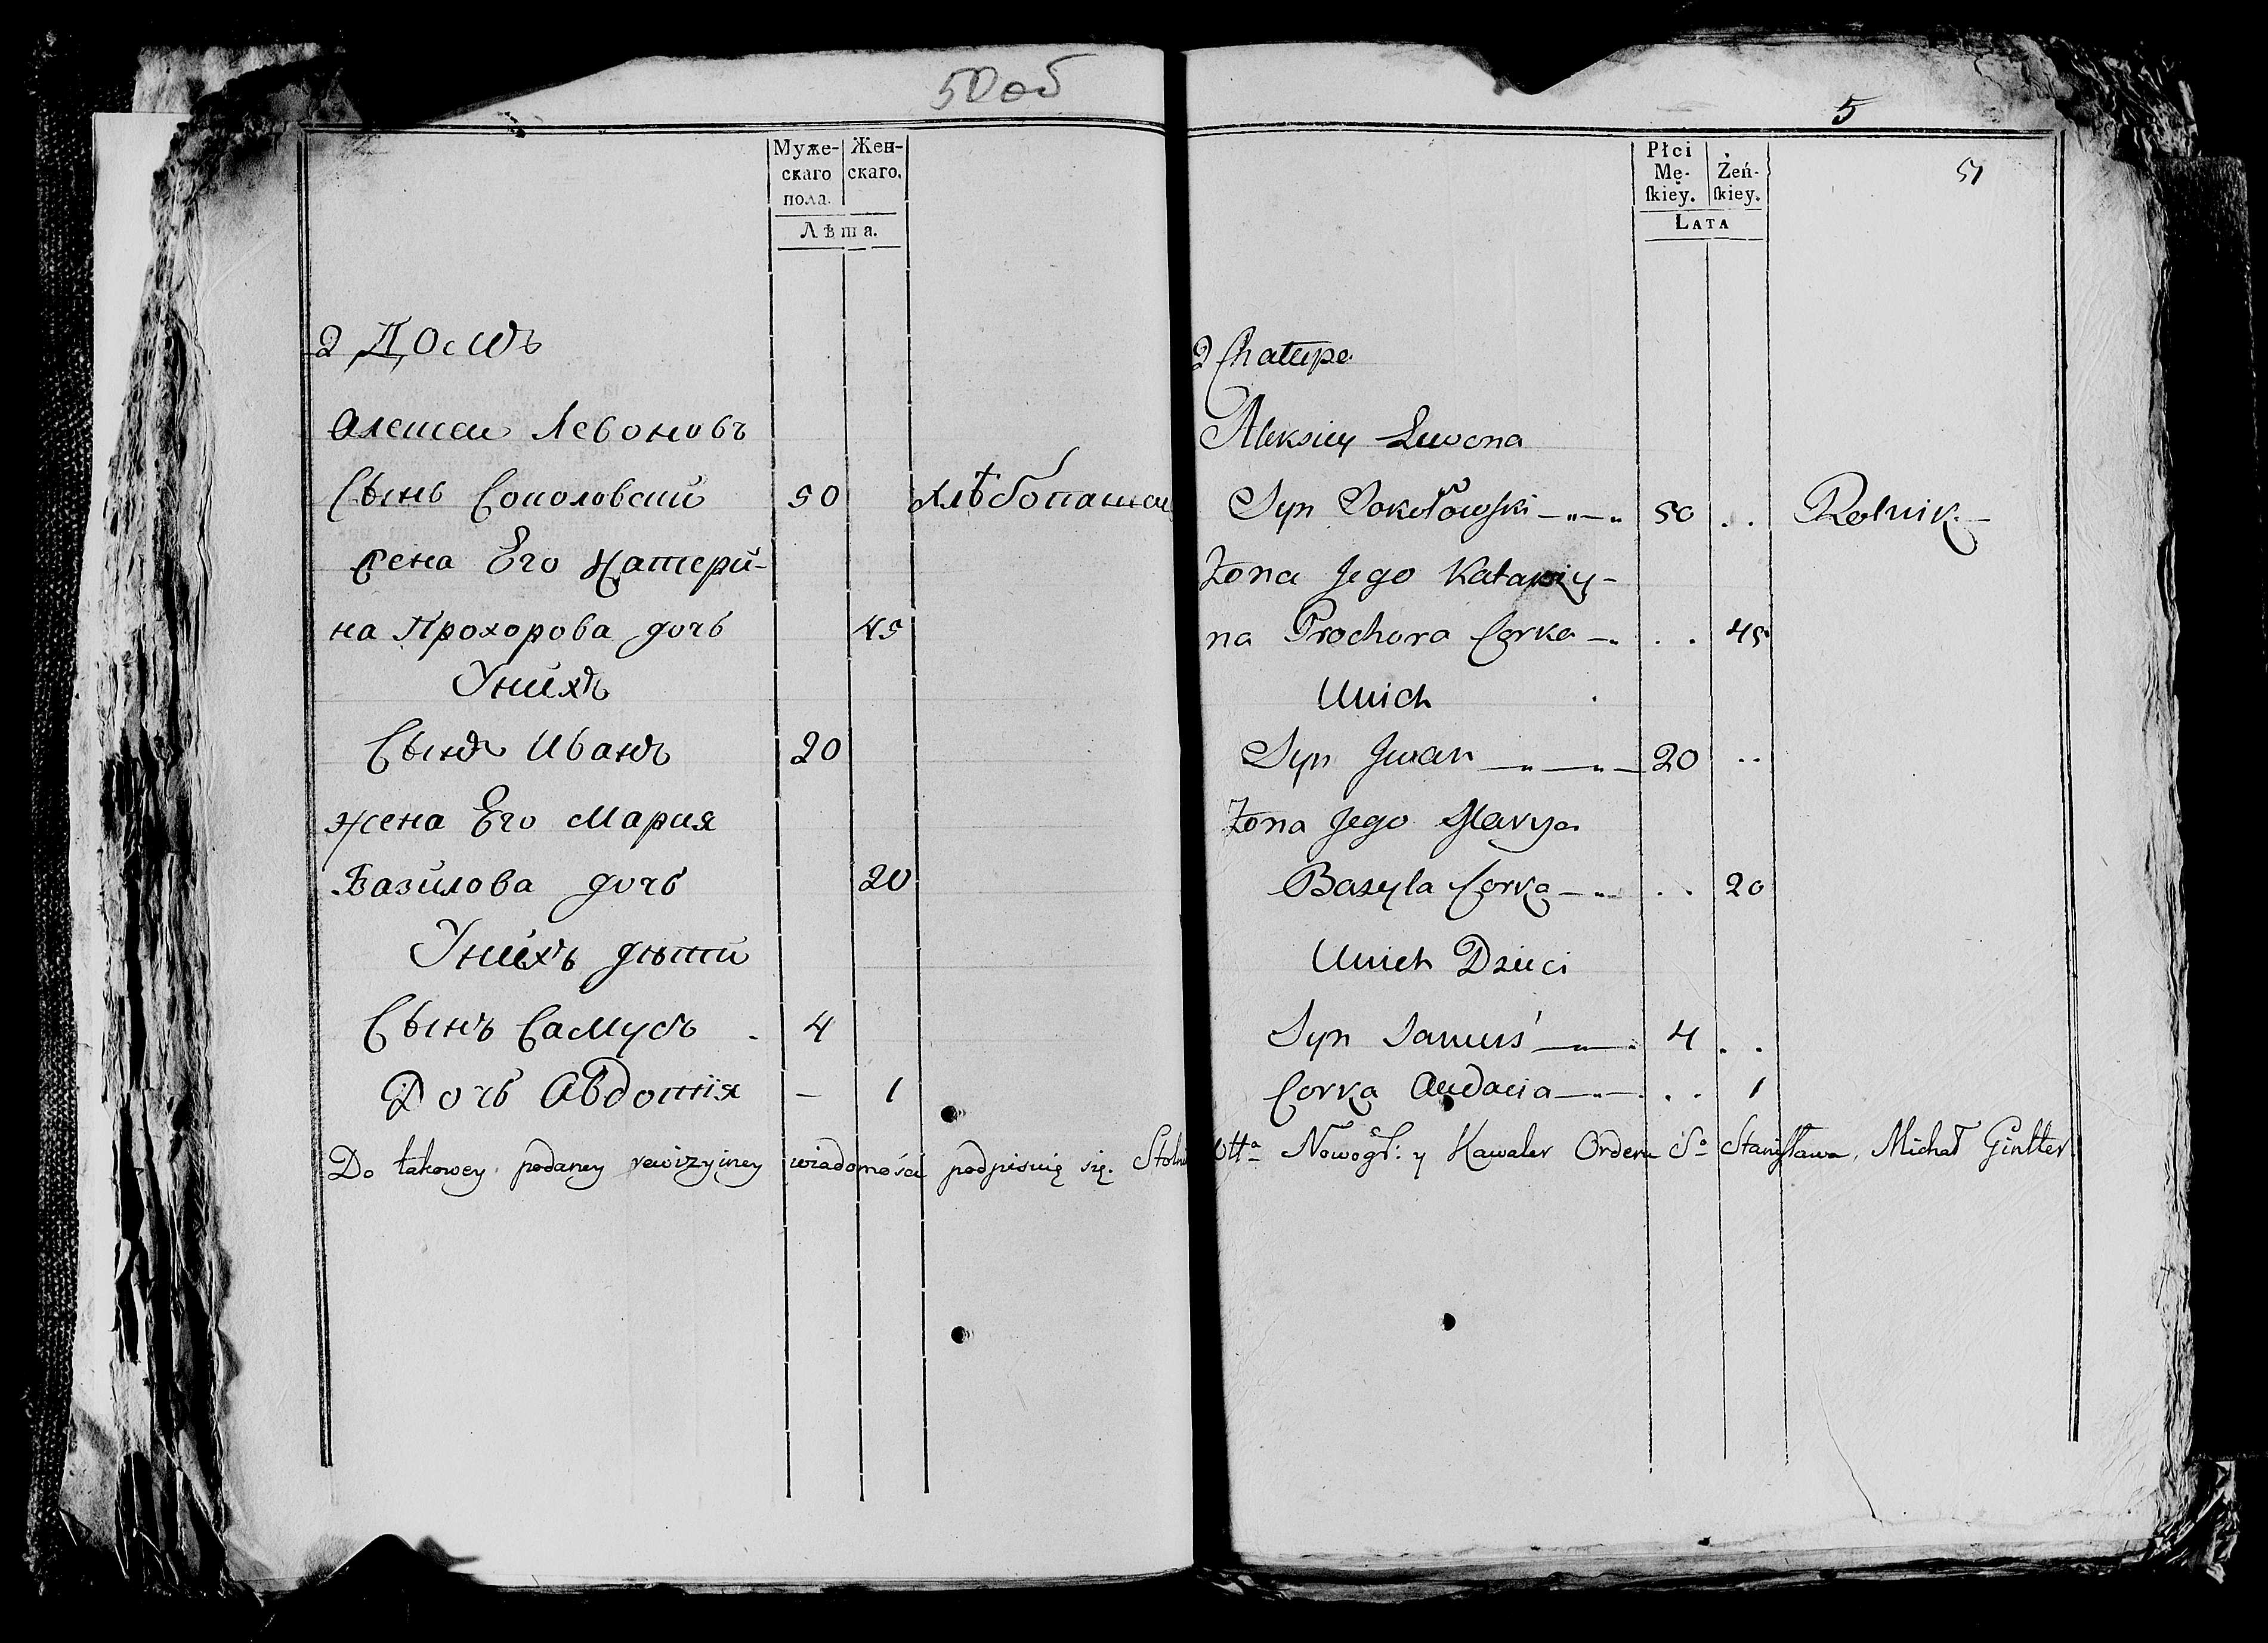 50 об
Муже-
скаго
пола.
Жен-
скаго.
Лѣта.
2 Домъ
Алексеи Левоновъ
Сынъ Соколовский 50 хлѣбопашец
жена Его Катери-
на Прохорова дочь 45
Унихъ
Сынъ Иванъ 20
жена Его Мария
Базилова дочь 20
Унихъ дѣти
Сынъ Самусь 4
Дочь Авдотия — 1
5
51
Płci
Mę-
skiey.
Żeń-
skiey.
LATA
2 Chałupa
Alexiey Lewona
Syn Sokołowski 50 .. Rolnik
Żona Jego Katarzy-
na Prochora Corka .. 45
Unich
Syn Jwan 20 ..
Żona Jego Marya
Bazyla Corka .. 20
Unich Dzieci
Syn Samuś 4 ..
Corka Audocia .. 1
Do takowey podaney rewizyiney wiadomości podpisuię się. Nowogr: y Kawaler Orderu Sº Stanisława, Michał Gintter